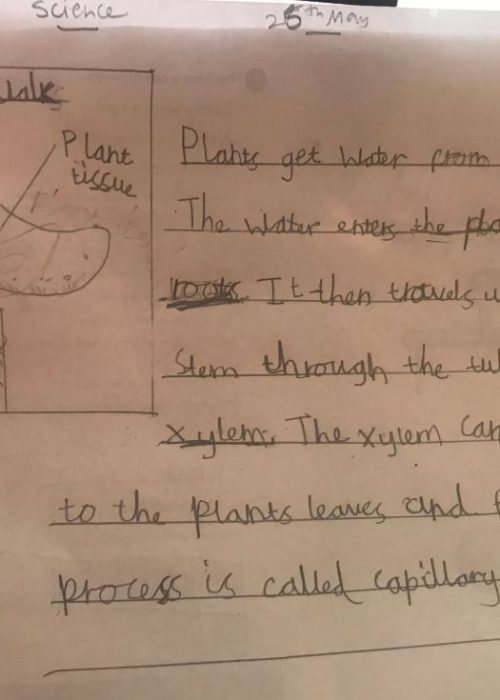 Science 26th May
Plant
tissue
Plants get water from
The water enters the
roots. It then travels
Stem through the
xylem. The xylem
to the plants leaves and
process is called capillary